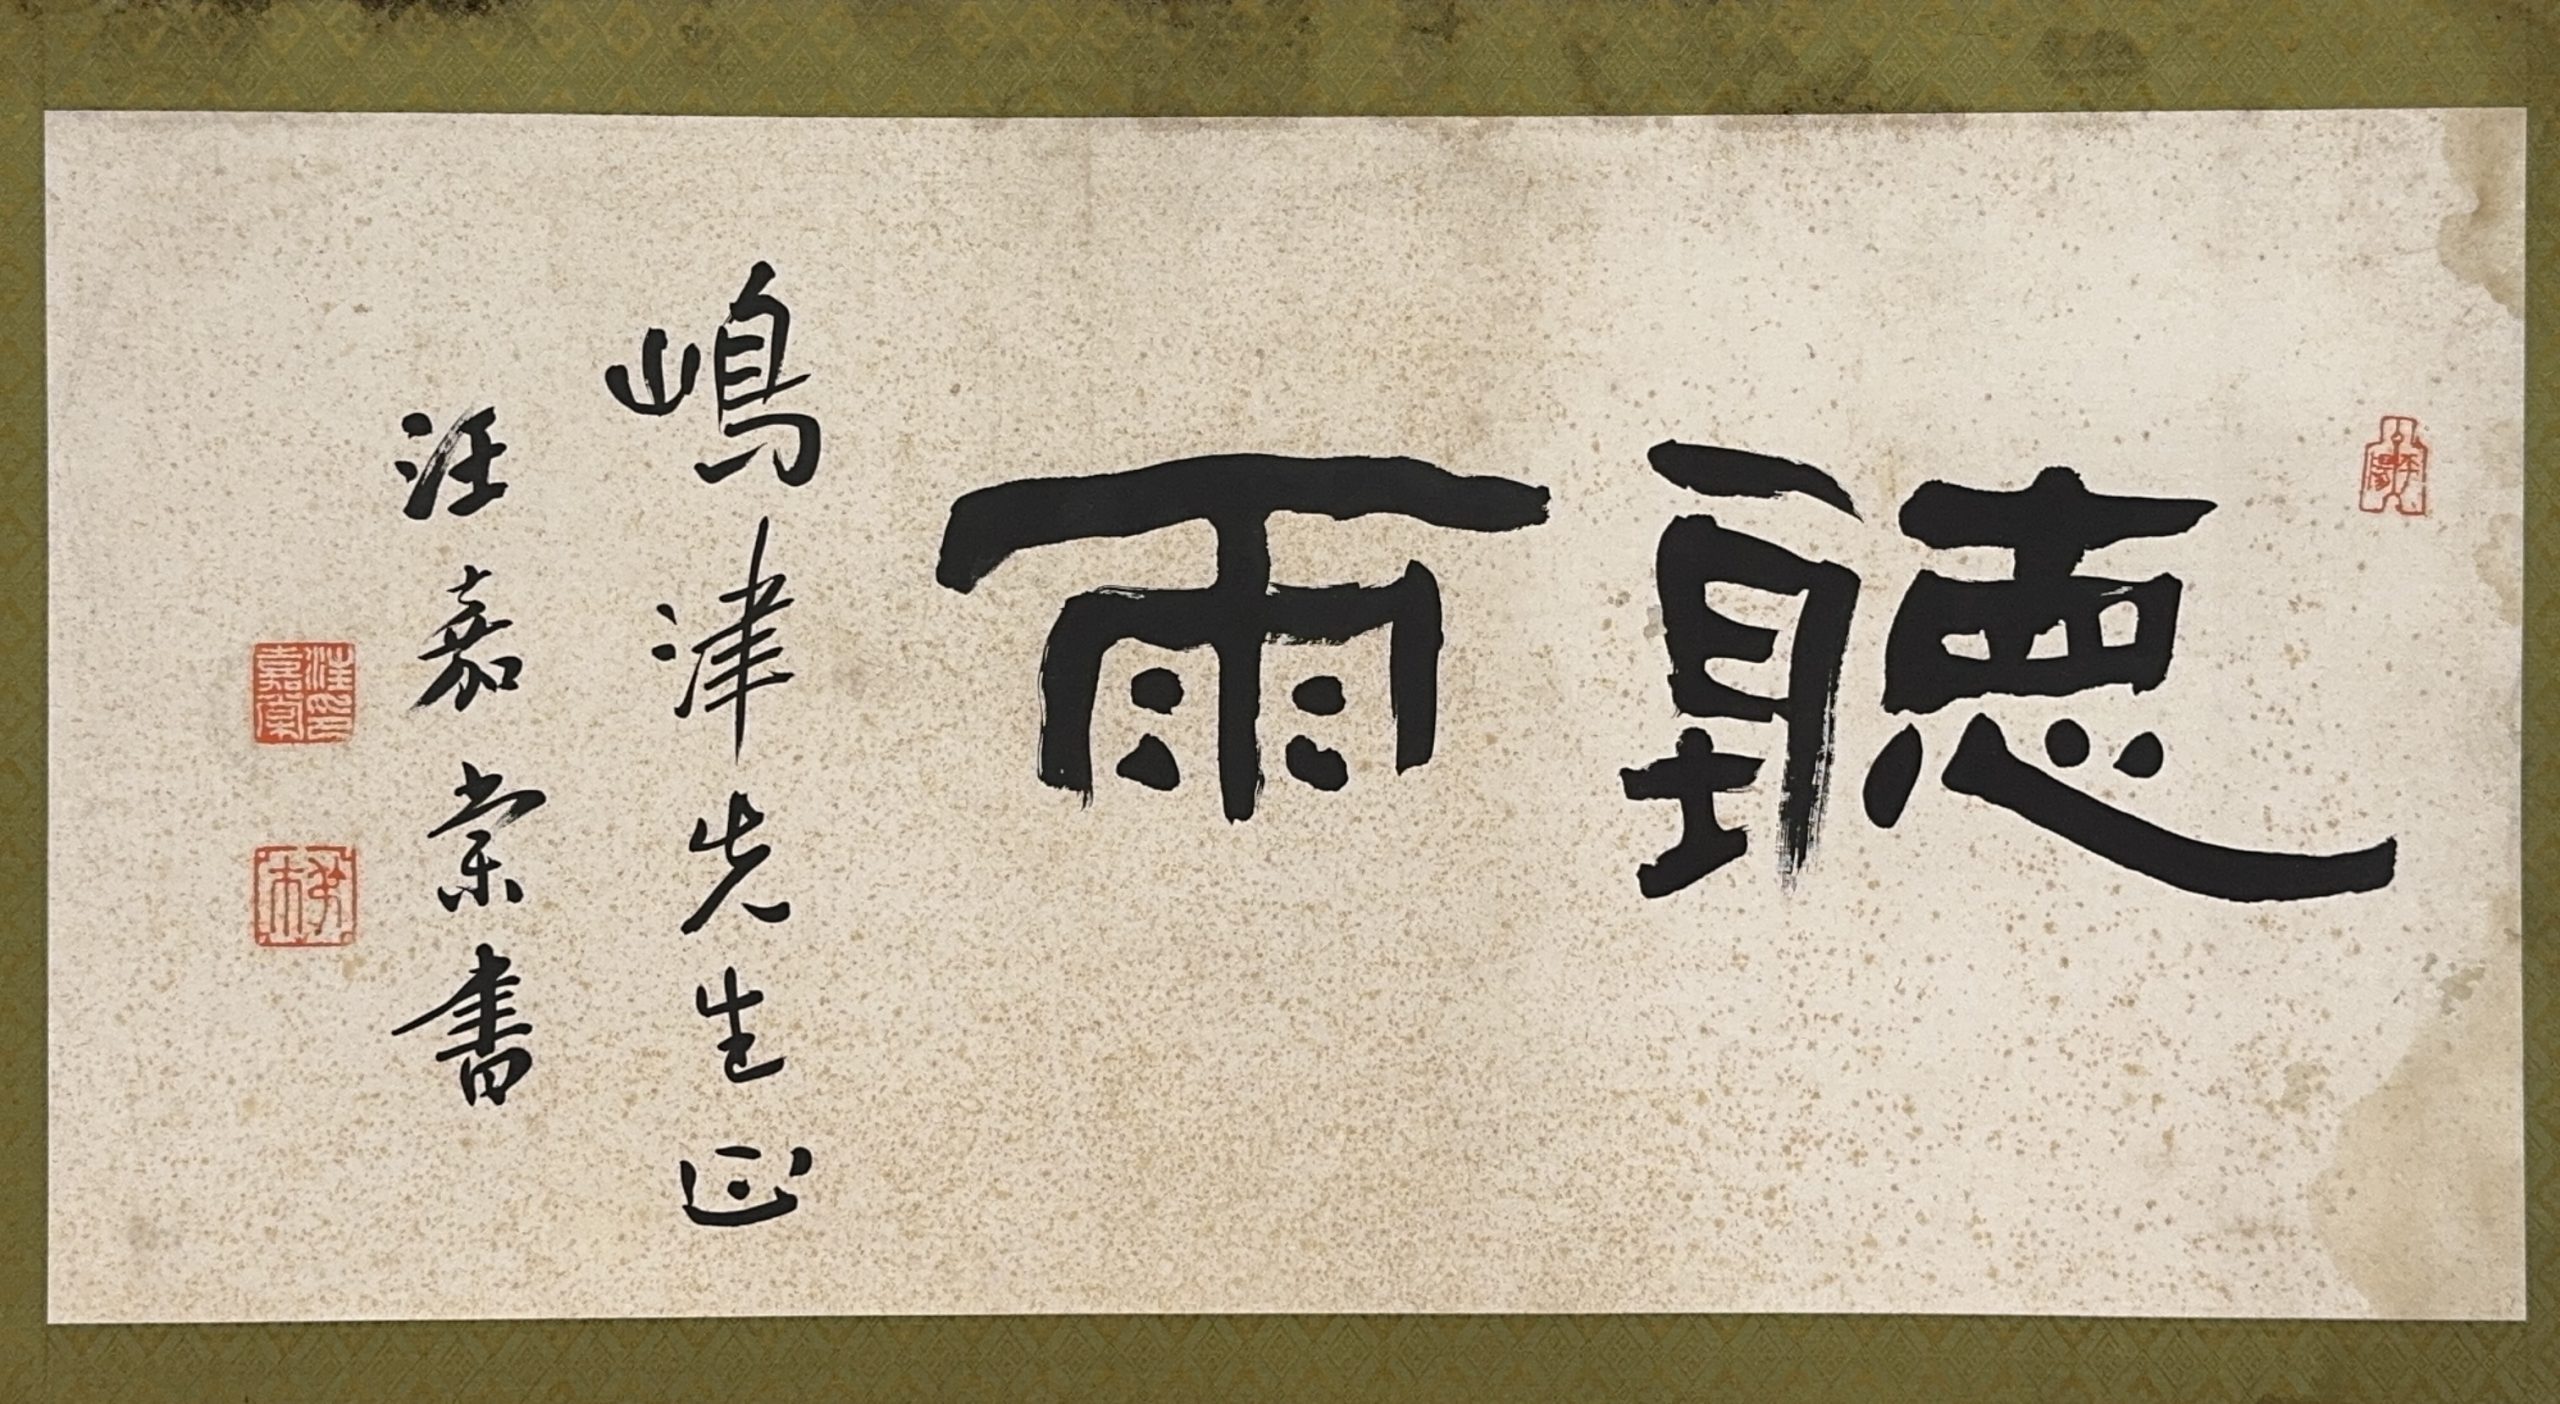 聽雨
嶋津先生正
汪嘉棠書
汪嘉棠印